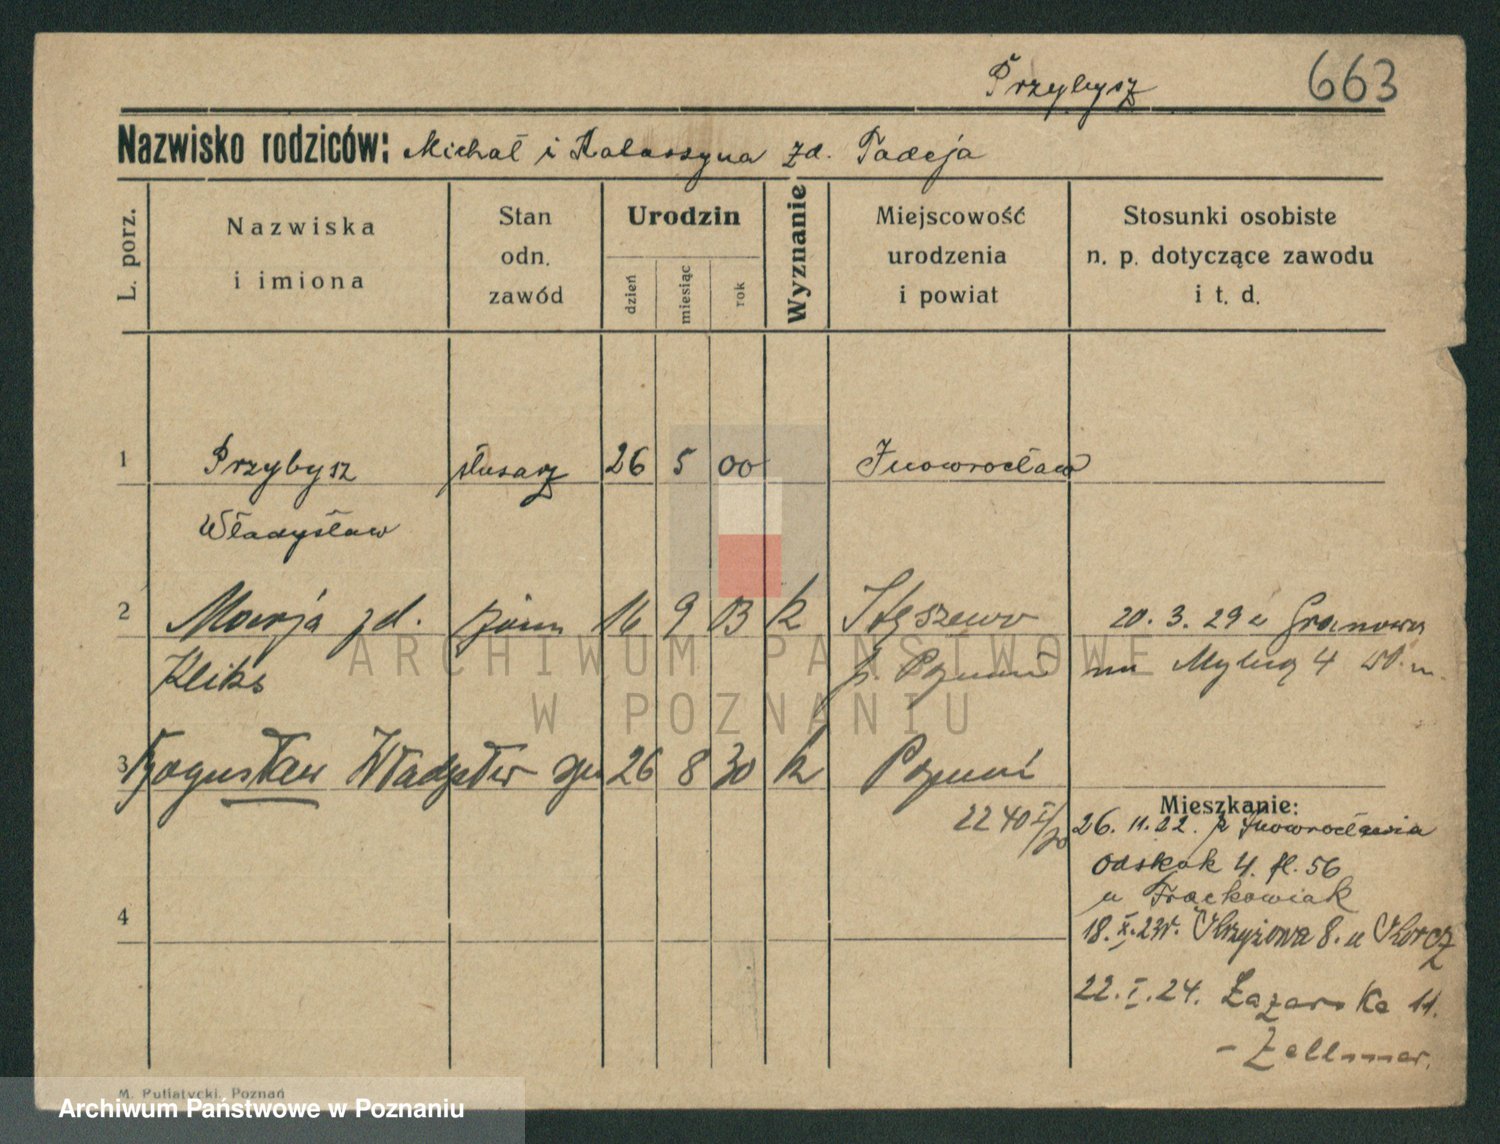 Przybysz 663
Nazwisko rodziców: Michał i Katarzyna zd. Tadeja
L. porz.
Nazwiska
i imiona
Stan
odn.
zawód
Urodzin
dzień
miesiąc
rok
Wyznanie
Miejscowość
urodzenia
i powiat
Stosunki osobiste
n. p. dotyczące zawodu
i t. d.
1 Przybysz ślusarz 26 5 00 Inowrocław
Władysław
2 Marja zd. żona 16 9 03 k Stęszewo 20. 3. 29 z Granowa
Kliks p. Poznań na Mylną 4
3 Bogusław Władysław syn 26 8 30 k Poznań
2240 I/30
Mieszkanie:
26. 11. 22. z Inowrocławia
4. fl. 56
u Frąckowiak
18. X. 23r. Krzyżowa 8. u Korcz
22. I. 24. Łazarska 11.
- Zellmer.
4
M. Putiatycki, Poznań
ARCHIWUM PAŃSTWOWE
W POZNANIU
Archiwum Państwowe w Poznaniu